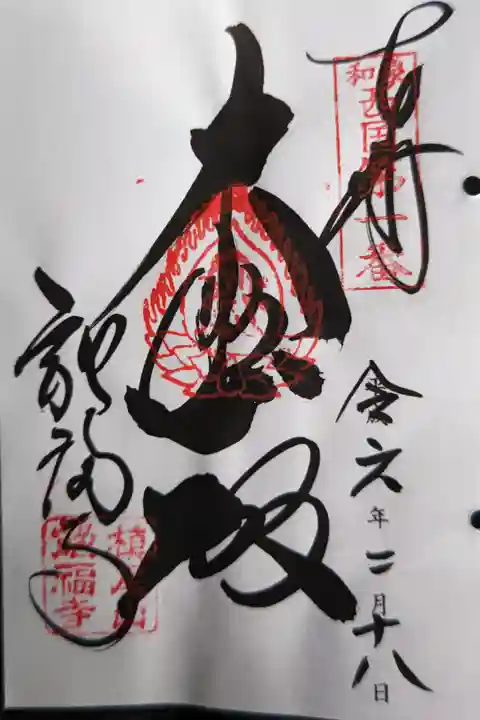 奉拝
和泉
西国第一番
大悲殿
令六年二月十八日
施福寺
槇尾山
施福寺